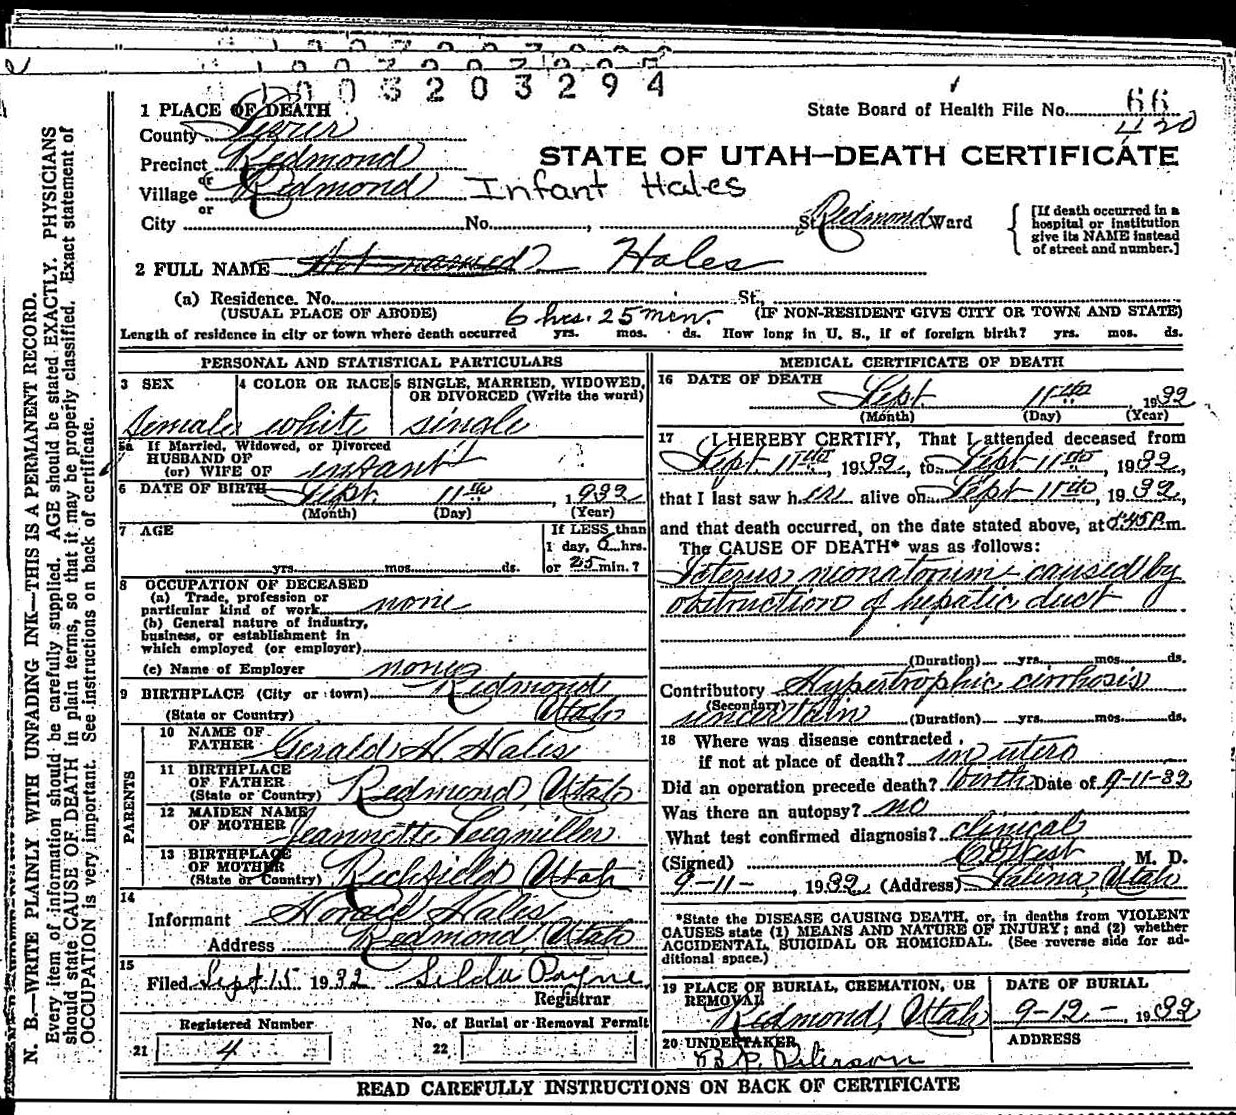 0 0 3 2 0 3 2 9 4
1 PLACE OF DEATH
State Board of Health File No. 66
420
County Sevier
Precinct Redmond
STATE OF UTAH—DEATH CERTIFICATE
or
Village Redmond Infant Hales
or
City No. , St. Redmond Ward
[If death occurred in a hospital or institution give its NAME instead of street and number.]
2 FULL NAME Not named Hales
(a) Residence. No. St.,
(USUAL PLACE OF ABODE) 6 hrs. 25 min. (IF NON-RESIDENT GIVE CITY OR TOWN AND STATE)
Length of residence in city or town where death occurred yrs. mos. ds. How long in U. S., if of foreign birth? yrs. mos. ds.
N. B.—WRITE PLAINLY WITH UNFADING INK—THIS IS A PERMANENT RECORD.
Every item of information should be carefully supplied. AGE should be stated EXACTLY. PHYSICIANS
should state CAUSE OF DEATH in plain terms, so that it may be properly classified. Exact statement of
OCCUPATION is very important. See instructions on back of certificate.
PERSONAL AND STATISTICAL PARTICULARS
3 SEX 4 COLOR OR RACE 5 SINGLE, MARRIED, WIDOWED,
OR DIVORCED (Write the word)
Female white single
5a If Married, Widowed, or Divorced
HUSBAND OF
(or) WIFE OF infant
6 DATE OF BIRTH Sept. 11th 1932
(Month) (Day) (Year)
7 AGE If LESS than
1 day, 6 hrs.
yrs. mos. ds. or 25 min.?
8 OCCUPATION OF DECEASED
(a) Trade, profession or
particular kind of work none
(b) General nature of industry,
business, or establishment in
which employed (or employer)
(c) Name of Employer none
9 BIRTHPLACE (City or town) Redmond
(State or Country) Utah
PARENTS
10 NAME OF
FATHER Gerald H. Hales
11 BIRTHPLACE
OF FATHER
(State or Country) Redmond, Utah
12 MAIDEN NAME
OF MOTHER Jeannette Seegmiller
13 BIRTHPLACE
OF MOTHER
(State or Country) Richfield, Utah
14
Informant Hales
Address Redmond, Utah
15
Filed Sept 15 1932 Selda Payne
Registrar
Registered Number No. of Burial or Removal Permit
21 4 22
MEDICAL CERTIFICATE OF DEATH
16 DATE OF DEATH
Sept. 11th, 1932
(Month) (Day) (Year)
17 I HEREBY CERTIFY, That I attended deceased from
Sept 11th, 1932, to Sept 11th, 1932,
that I last saw her alive on Sept 11th, 1932,
and that death occurred, on the date stated above, at 5:45 P.m.
The CAUSE OF DEATH* was as follows:
Icterus neonatorium caused by
obstruction of hepatic duct
(Duration) yrs. mos. ds.
Contributory Hypertrophic cirrhosis
(Secondary)
uncertain (Duration) yrs. mos. ds.
18 Where was disease contracted,
if not at place of death? in utero
Did an operation precede death? Birth Date of 9-11-32
Was there an autopsy? no
What test confirmed diagnosis? clinical
(Signed) C E West, M. D.
9-11-, 1932 (Address) Salina, Utah
*State the DISEASE CAUSING DEATH, or, in deaths from VIOLENT
CAUSES state (1) MEANS AND NATURE OF INJURY; and (2) whether
ACCIDENTAL, SUICIDAL OR HOMICIDAL. (See reverse side for ad-
ditional space.)
19 PLACE OF BURIAL, CREMATION, OR
REMOVAL
Redmond, Utah
DATE OF BURIAL
9-12-, 1932
20 UNDERTAKER
B. P. Peterson
ADDRESS
READ CAREFULLY INSTRUCTIONS ON BACK OF CERTIFICATE